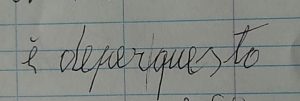 è deper questo